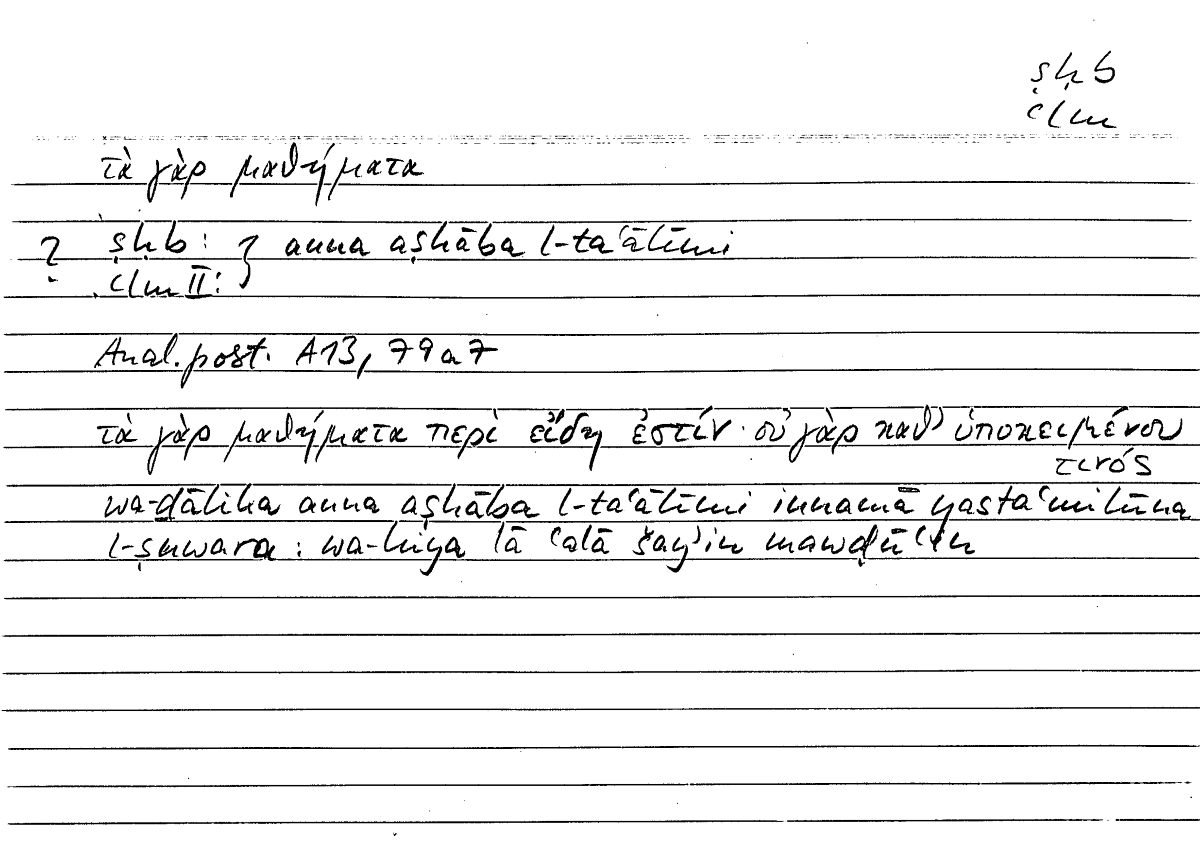 ṣḥb
ʿlm
τὰ γὰρ μαθήματα
? ṣḥb : } anna aṣḥāba l-taʿālīmi
ʿlm II :
Anal. post. A13, 79a7
τὰ γὰρ μαθήματα περὶ εἴδη ἐστίν· οὐ γὰρ καθ’ ὑποκειμένου
τινός
wa-ḏālika anna aṣḥāba l-taʿālīmi innamā yastaʿmilūna
l-ṣuwara : wa-hiya lā ʿalā šayʾin mawḍūʿin